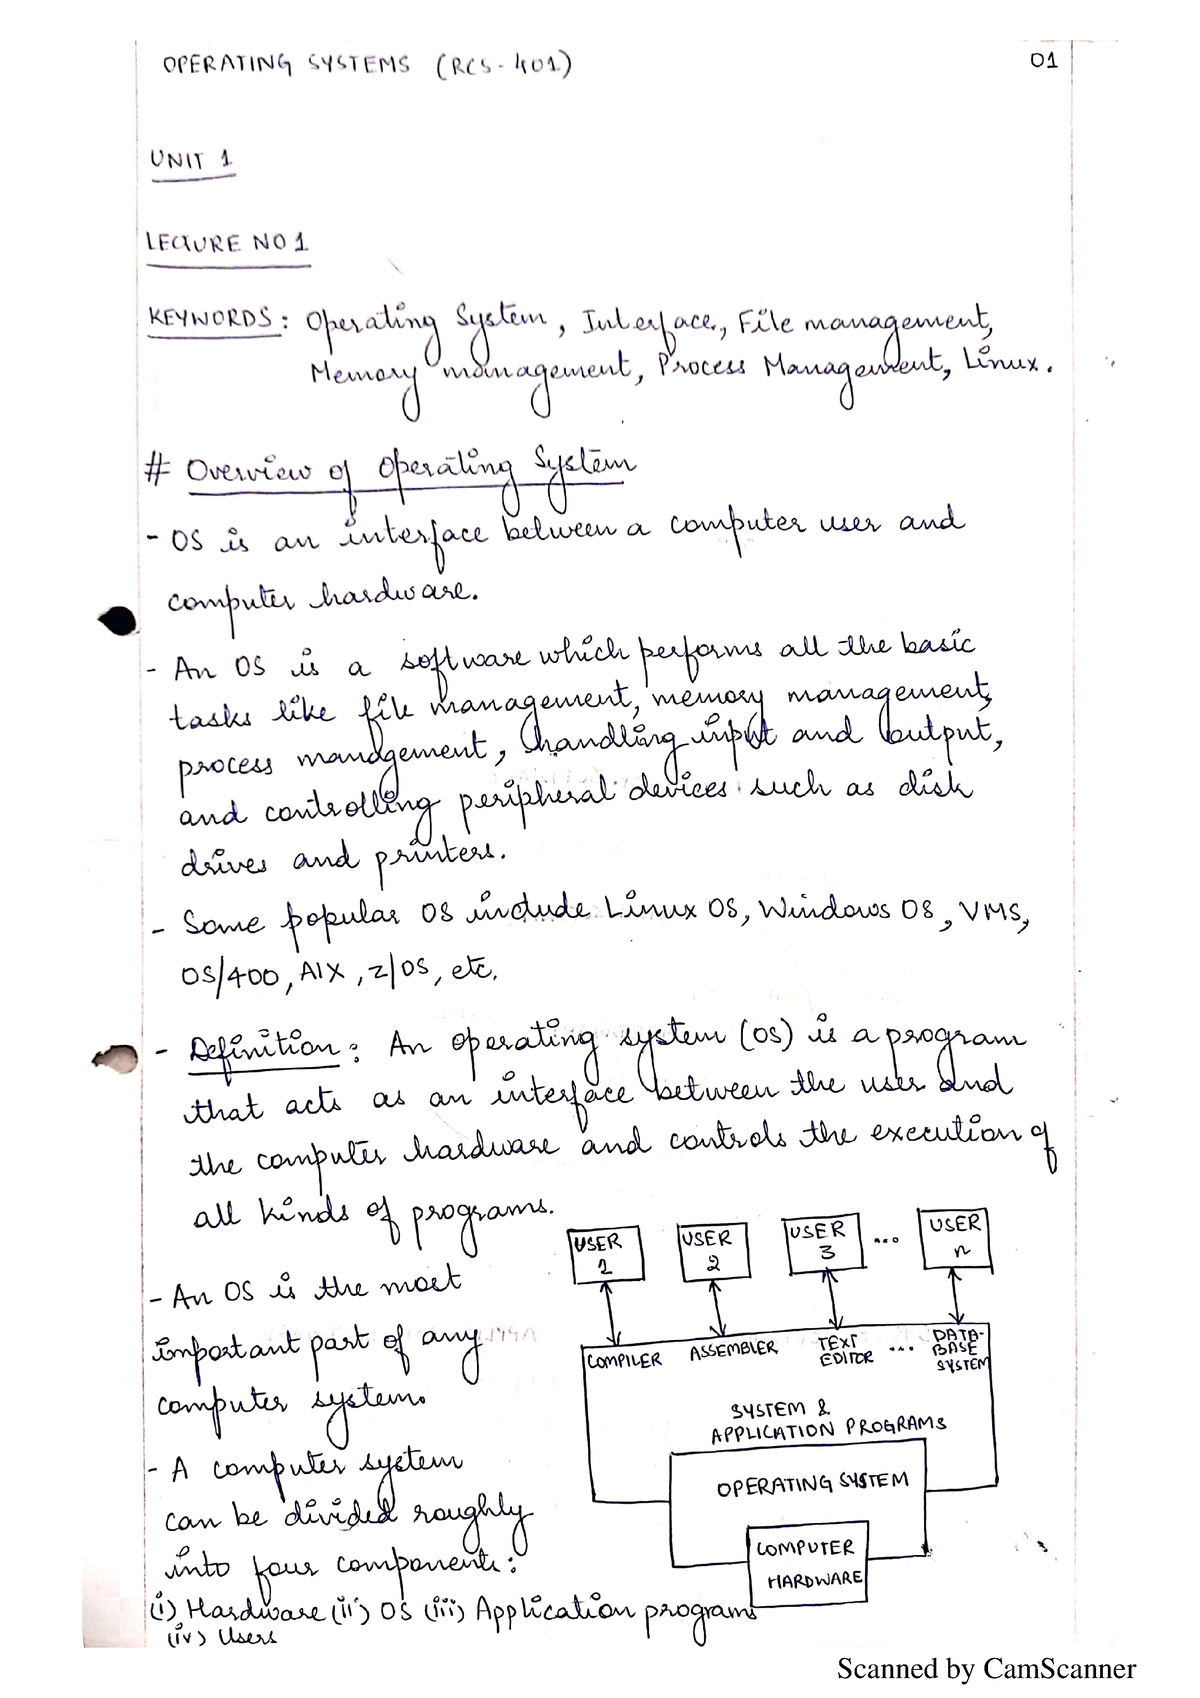 OPERATING SYSTEMS (RCS-401) 01
UNIT 1
LECTURE NO 1
KEYWORDS: Operating System, Interface, File management,
Memory management, Process Management, Linux.
# Overview of Operating System
- OS is an interface between a computer user and
computer hardware.
- An OS is a software which performs all the basic
tasks like file management, memory management,
process management, handling input and output,
and controlling peripheral devices such as disk
drives and printers.
- Some popular OS include Linux OS, Windows OS, VMS,
OS/400, AIX, z/OS, etc.
- Definition: An operating system (OS) is a program
that acts as an interface between the user and
the computer hardware and controls the execution of
all kinds of programs.
- An OS is the most
important part of any
computer system.
- A computer system
can be divided roughly
into four components:
(i) Hardware (ii) OS (iii) Application programs
(iv) Users
USER 1
USER 2
USER 3
...
USER n
COMPILER
ASSEMBLER
TEXT
EDITOR
...
DATA-
BASE
SYSTEM
SYSTEM &
APPLICATION PROGRAMS
OPERATING SYSTEM
COMPUTER
HARDWARE
Scanned by CamScanner